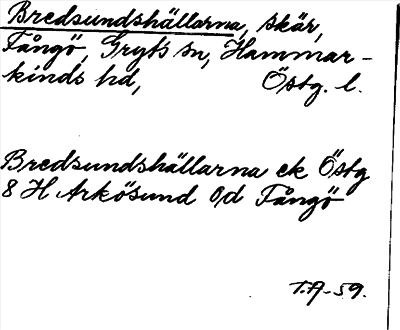 Bredsundshällarna, skär,
Fångö, Gryts sn, Hammar-
kinds hd, Östg. l.
Bredsundshällarna ek Östg
8 H Arkösund Od Fångö
T.A-59.